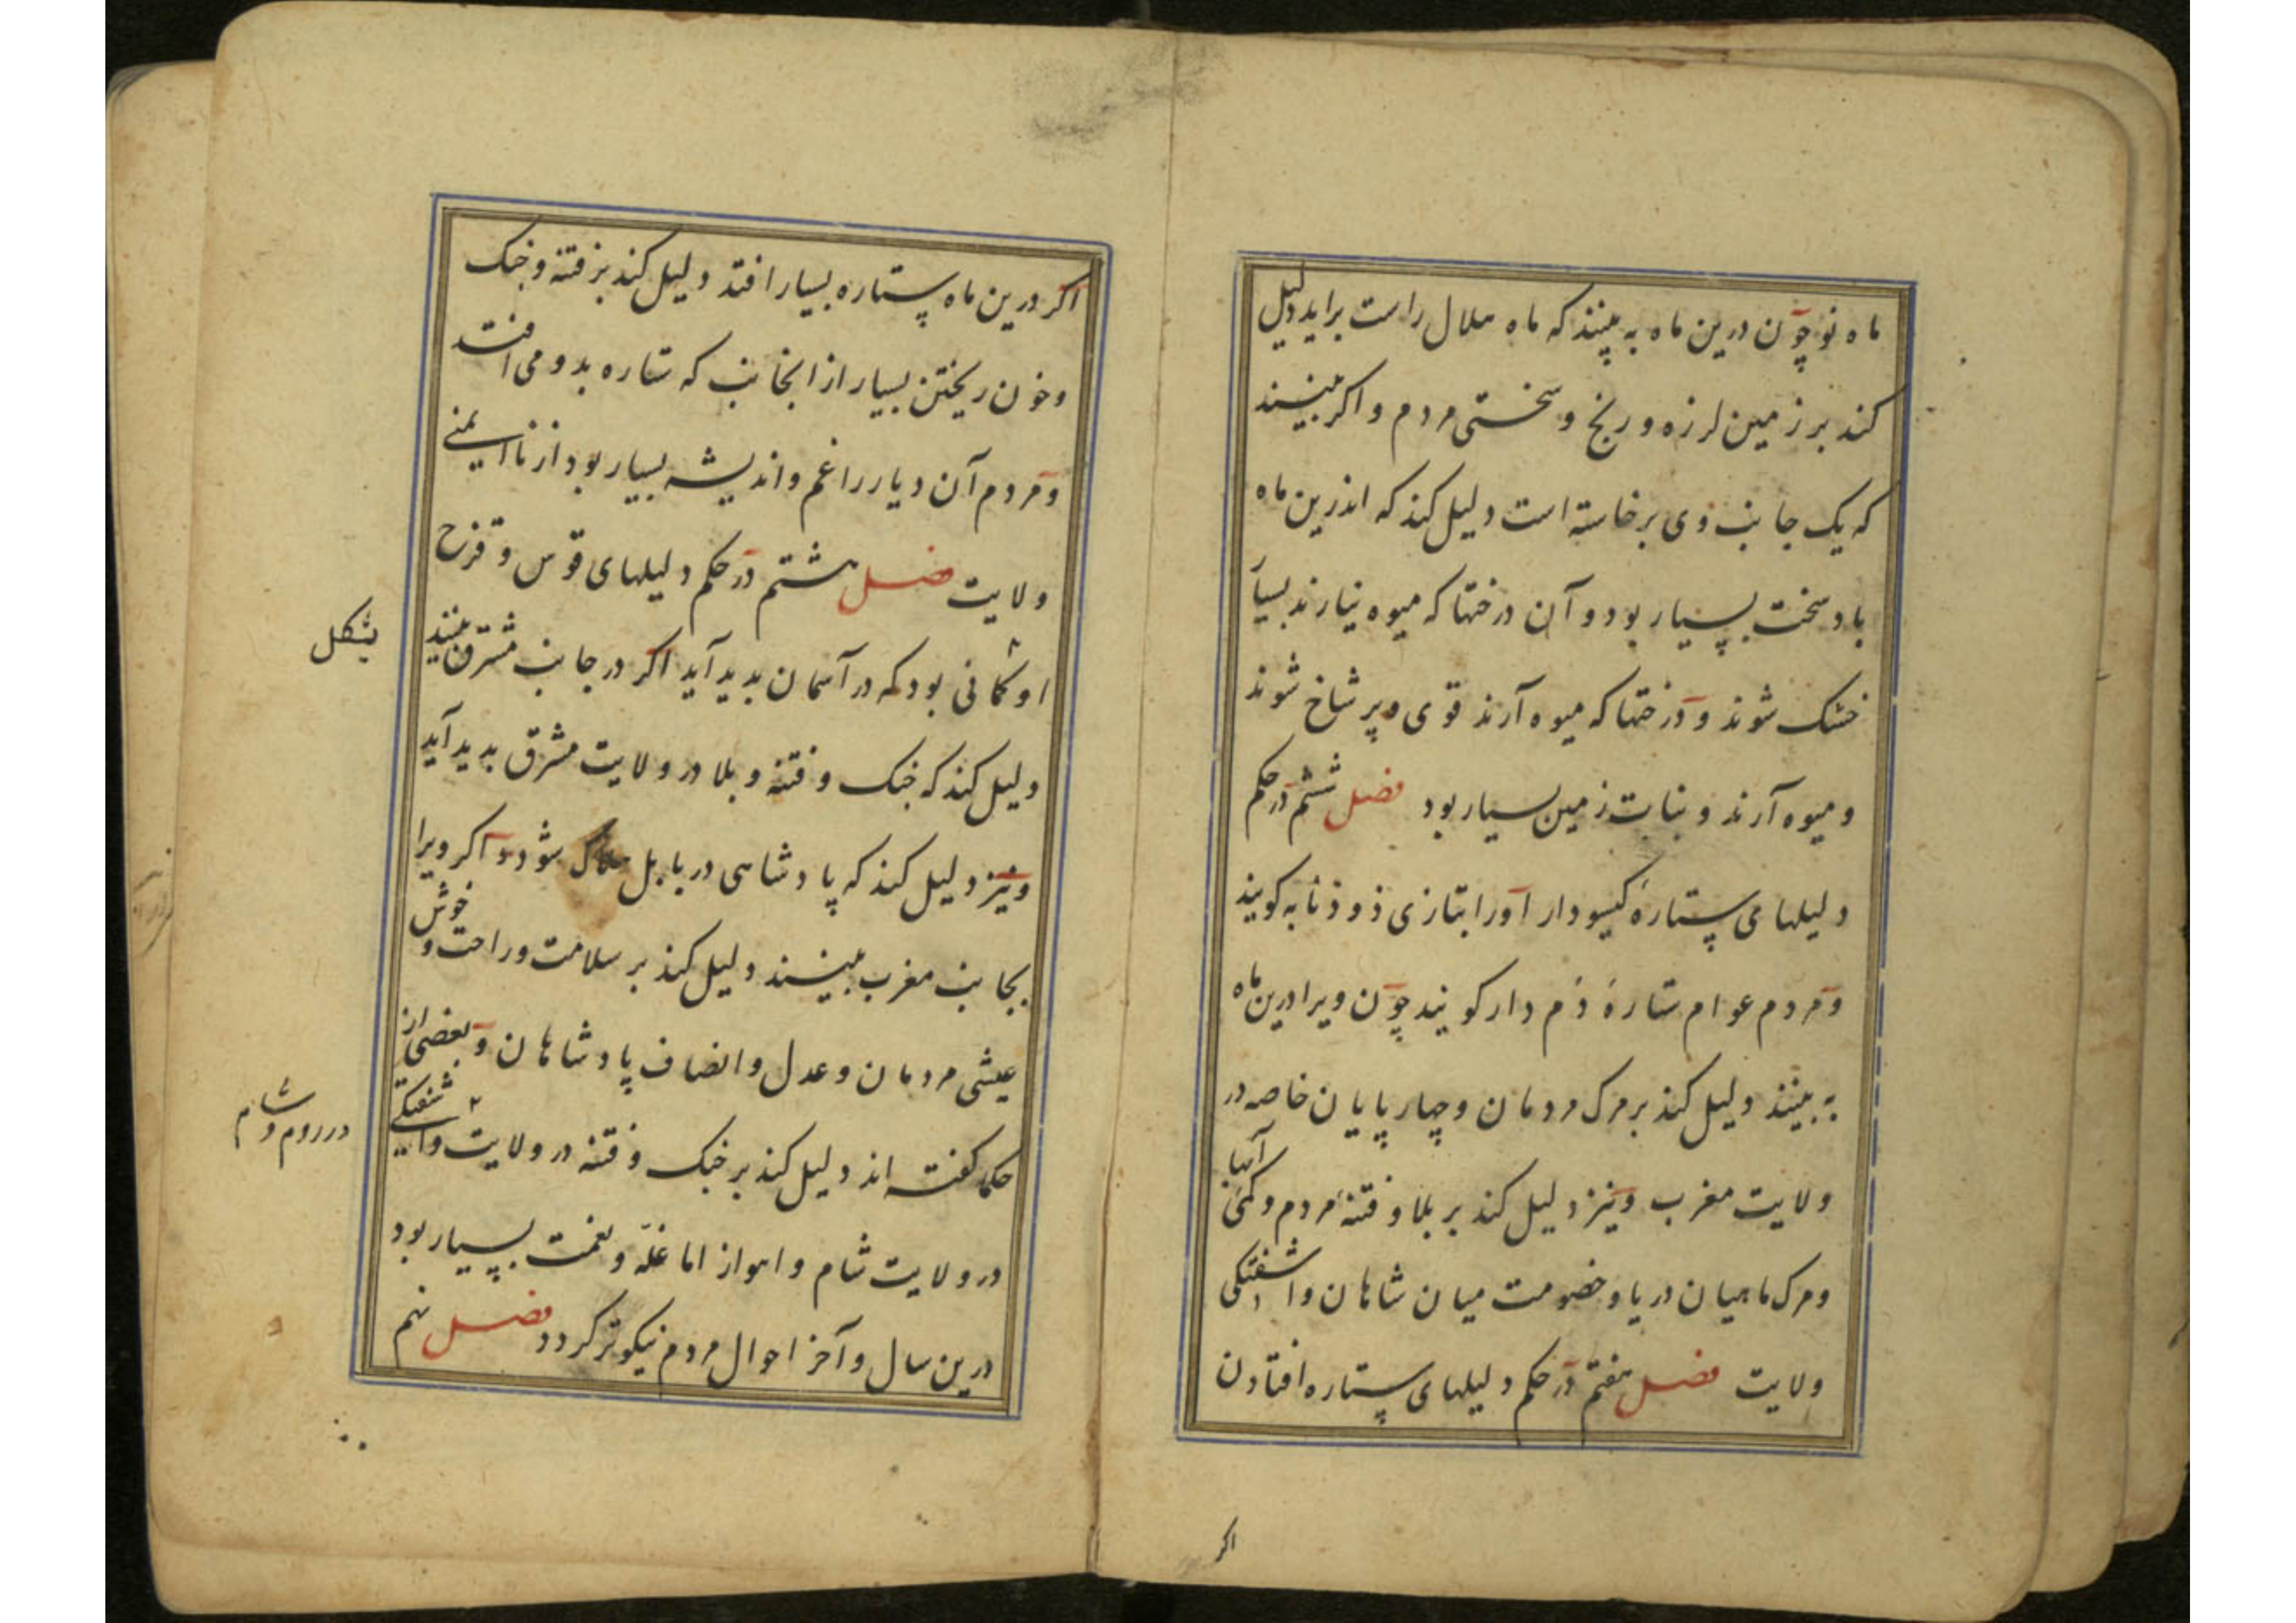 ماه نو چون درین ماه به بینند که ماه هلال راست براید دلیل
کند بر زمین لرزه و رنج و سختی مردم و اکر ببینند
که یک جانب وی برخاسته است دلیل کند که اندرین ماه
باد سخت بسیار بود و آن درختها که میوه نیارند بسیار
خشک شوند و درختها که میوه آرند قوی و پر شاخ شوند
و میوه آرند و نبات زمین بسیار بود فصل ششم در حکم
دلیلهای ستارهٔ کیسودار اورا بتازی ذو ذنابه کویند
و مردم عوام ستارهٔ دم دار کویند چون ویرا درین ماه
به بینند دلیل کند بر مرک مردمان و چهار پایان خاصه در
ولایت مغرب و نیز دلیل کند بر بلا و فتنهٔ مردم و کمی آبها
و مرک ماهیان دریا و خصومت میان شاهان و اشفتکی
ولایت فصل هفتم در حکم دلیلهای ستاره افتادن
اکر
اکر درین ماه ستاره بسیار افتد دلیل کند بر فتنه و جنک
و خون ریختن بسیار از انجانب که ستاره بدو می افتد
و مردم آن دیار را غم و اندیشه بسیار بود از ناایمنی
ولایت فصل هشتم در حکم دلیلهای قوس و قزح
او کمانی بود که در آسمان بدید آید اکر در جانب مشرق بینند
بشکل
دلیل کند که جنک و فتنه و بلا در ولایت مشرق بدید آید
و نیز دلیل کند که پادشاهی در بابل هلاک شود و اکر ویرا
بجانب مغرب ببینند دلیل کند بر سلامت و راحت و خوش
عیشی مردمان و عدل و انصاف پادشاهان و بعضی از
حکما کفته اند دلیل کند بر جنک و فتنه در ولایت و اشفتکی
در روم و شام
در ولایت شام و اهواز اما غلّه و نعمت بسیار بود
درین سال و آخر احوال مردم نیکوتر کردد فصل نهم